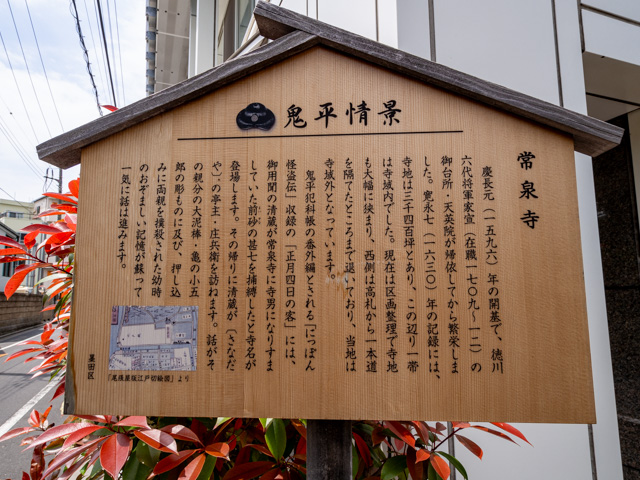 鬼平情景
常泉寺
慶長元（一五九六）年の開基で、徳川
六代将軍家宣（在職一七〇九～一二）の
御台所・天英院が帰依してから繁栄しま
した。寛永七（一六三〇）年の記録には、
寺地は三千四百坪とあり、この辺り一帯
は寺域内でした。現在は区画整理で寺地
も大幅に狭まり、西側は高札から一本道
を隔てたところまで退いており、当地は
寺域外となっています。
鬼平犯科帳の番外編とされる「にっぽん
怪盗伝」収録の「正月四日の客」には、
御用聞の清蔵が常泉寺に寺男になりすま
していた前砂の甚七を捕縛したと寺名が
登場します。その帰りに清蔵が〔さなだ
や〕の亭主・庄兵衛を訪ねます。話がそ
の親分の大泥棒・亀の小五
郎の彫ものに及び、押し込
みに両親を撲殺された幼時
のおぞましい記憶が蘇って
一気に話は進みます。
「尾張屋版江戸切絵図」より
墨田区